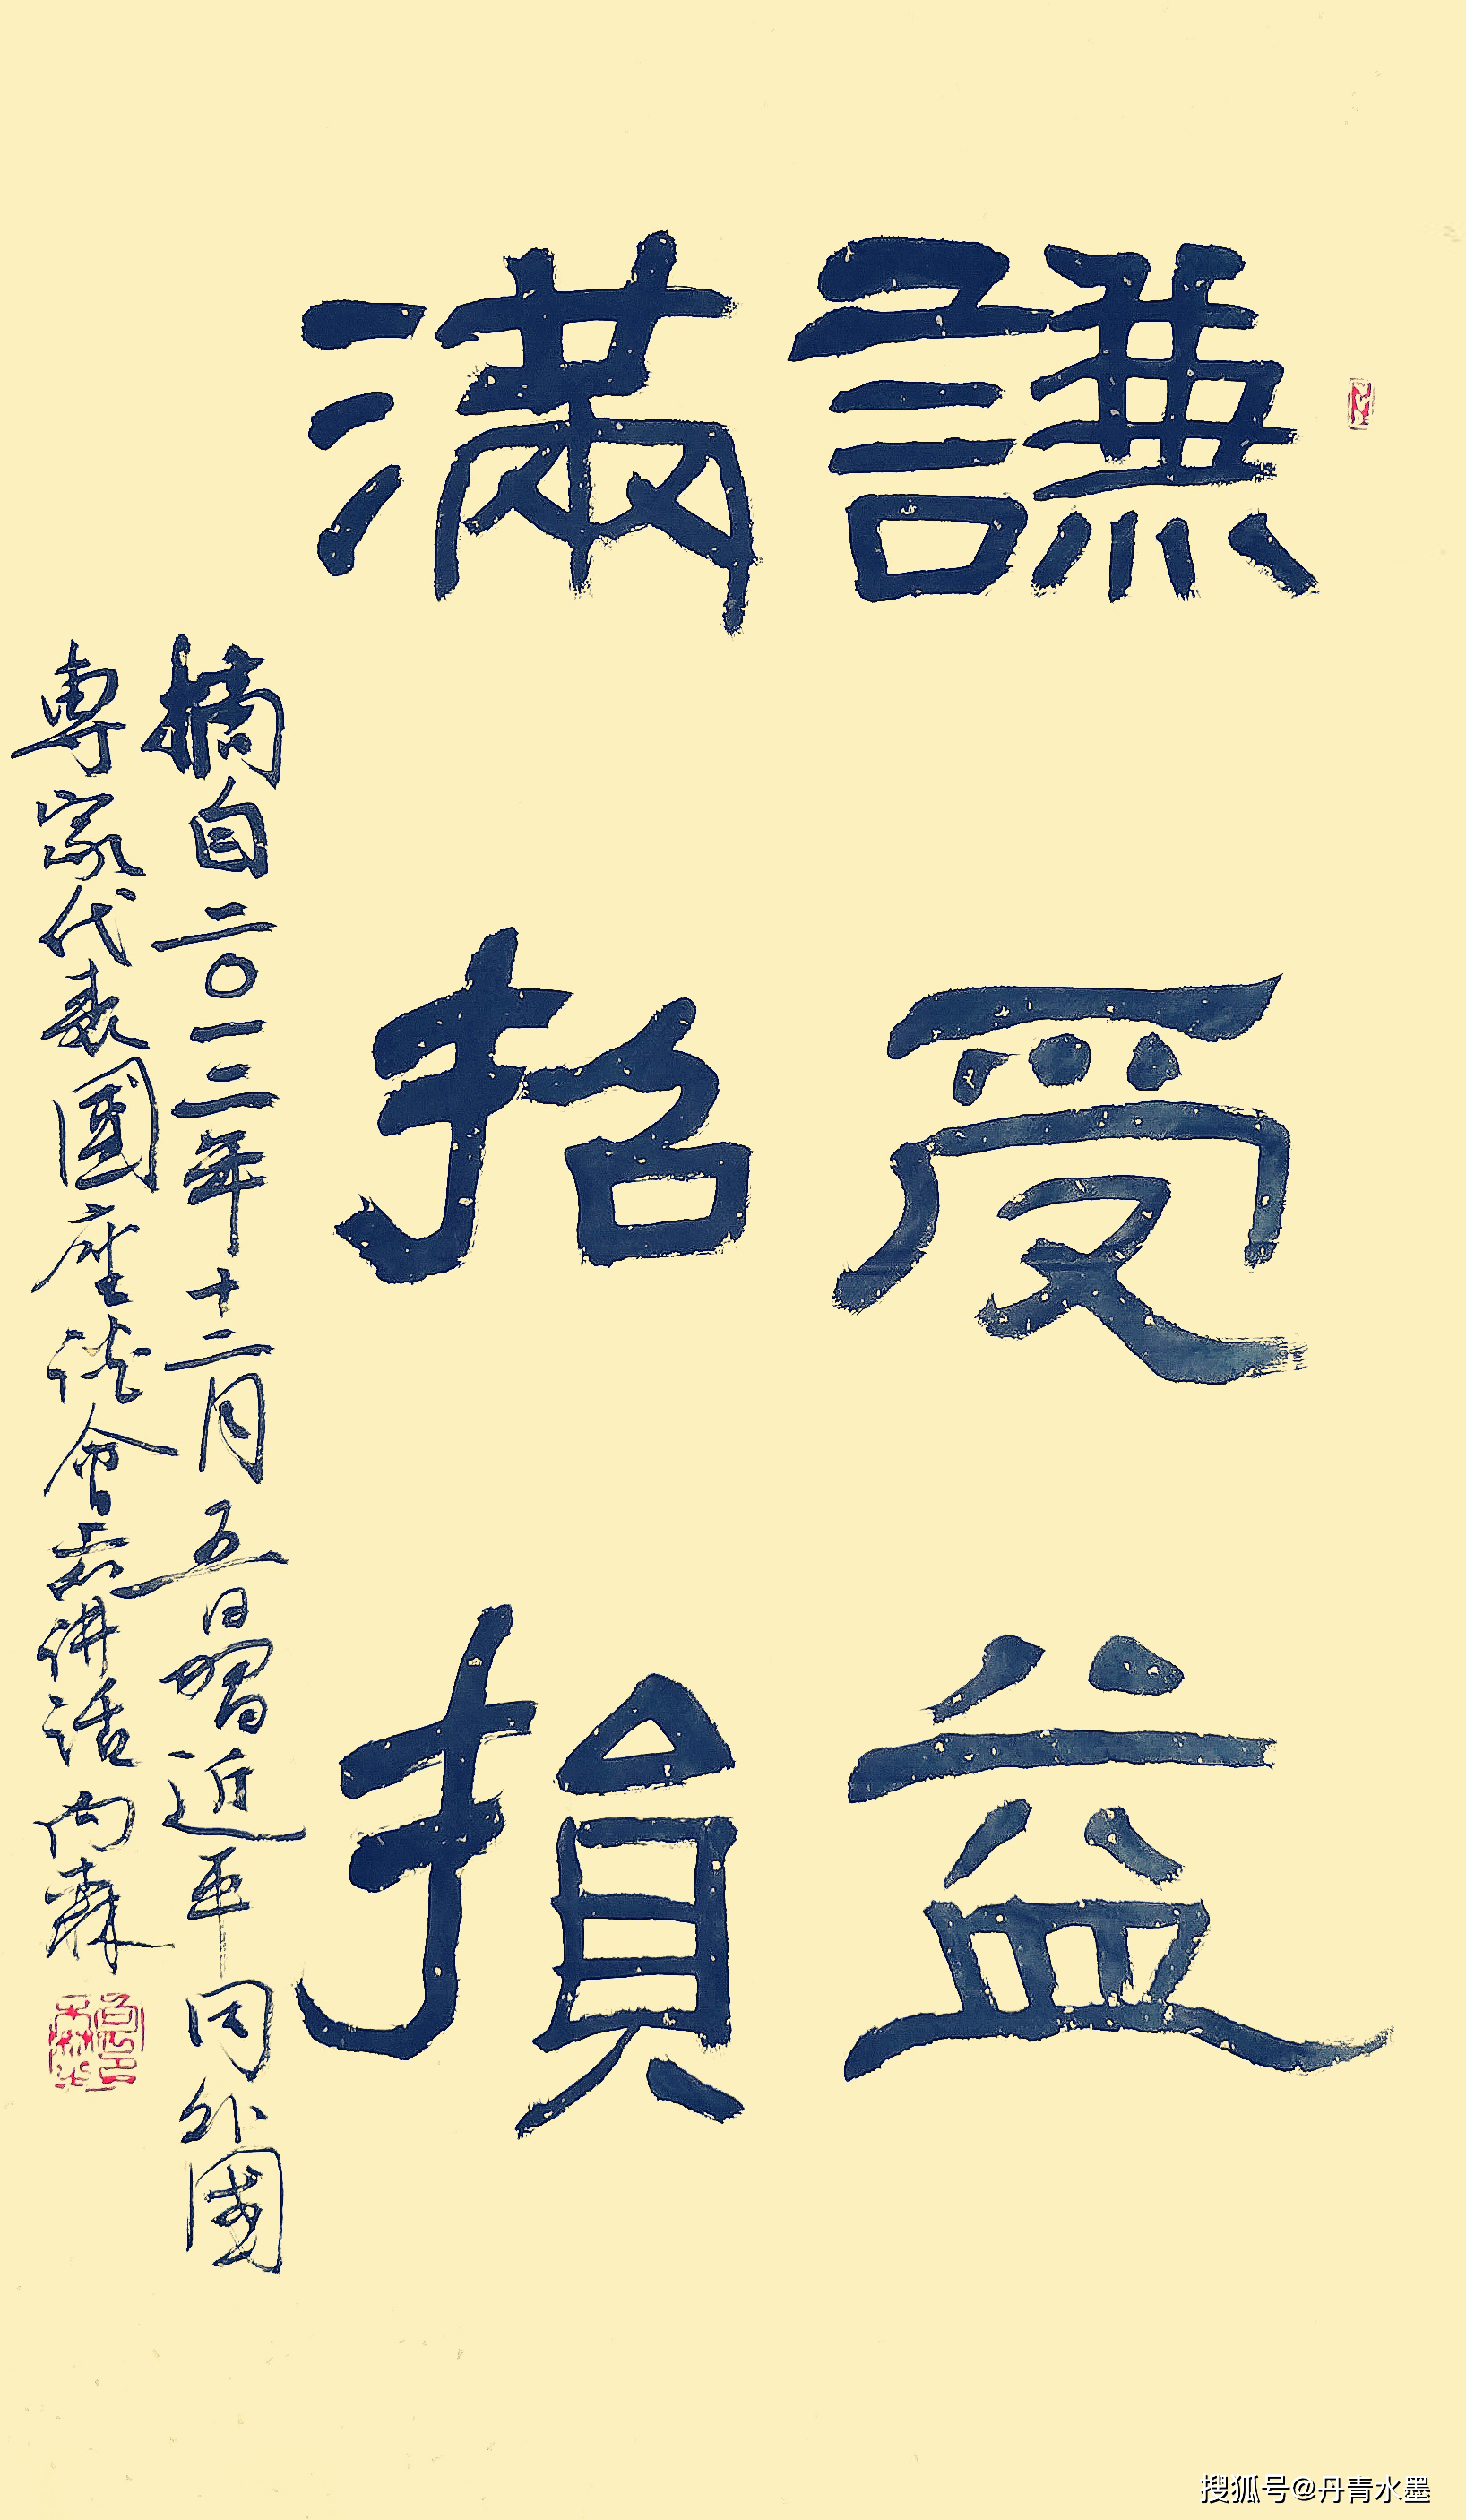 謙受益
滿招損
摘自二〇一二年十二月五日習近平同外國
專家代表團座談會上的講話 尚森
搜狐号@丹青水墨